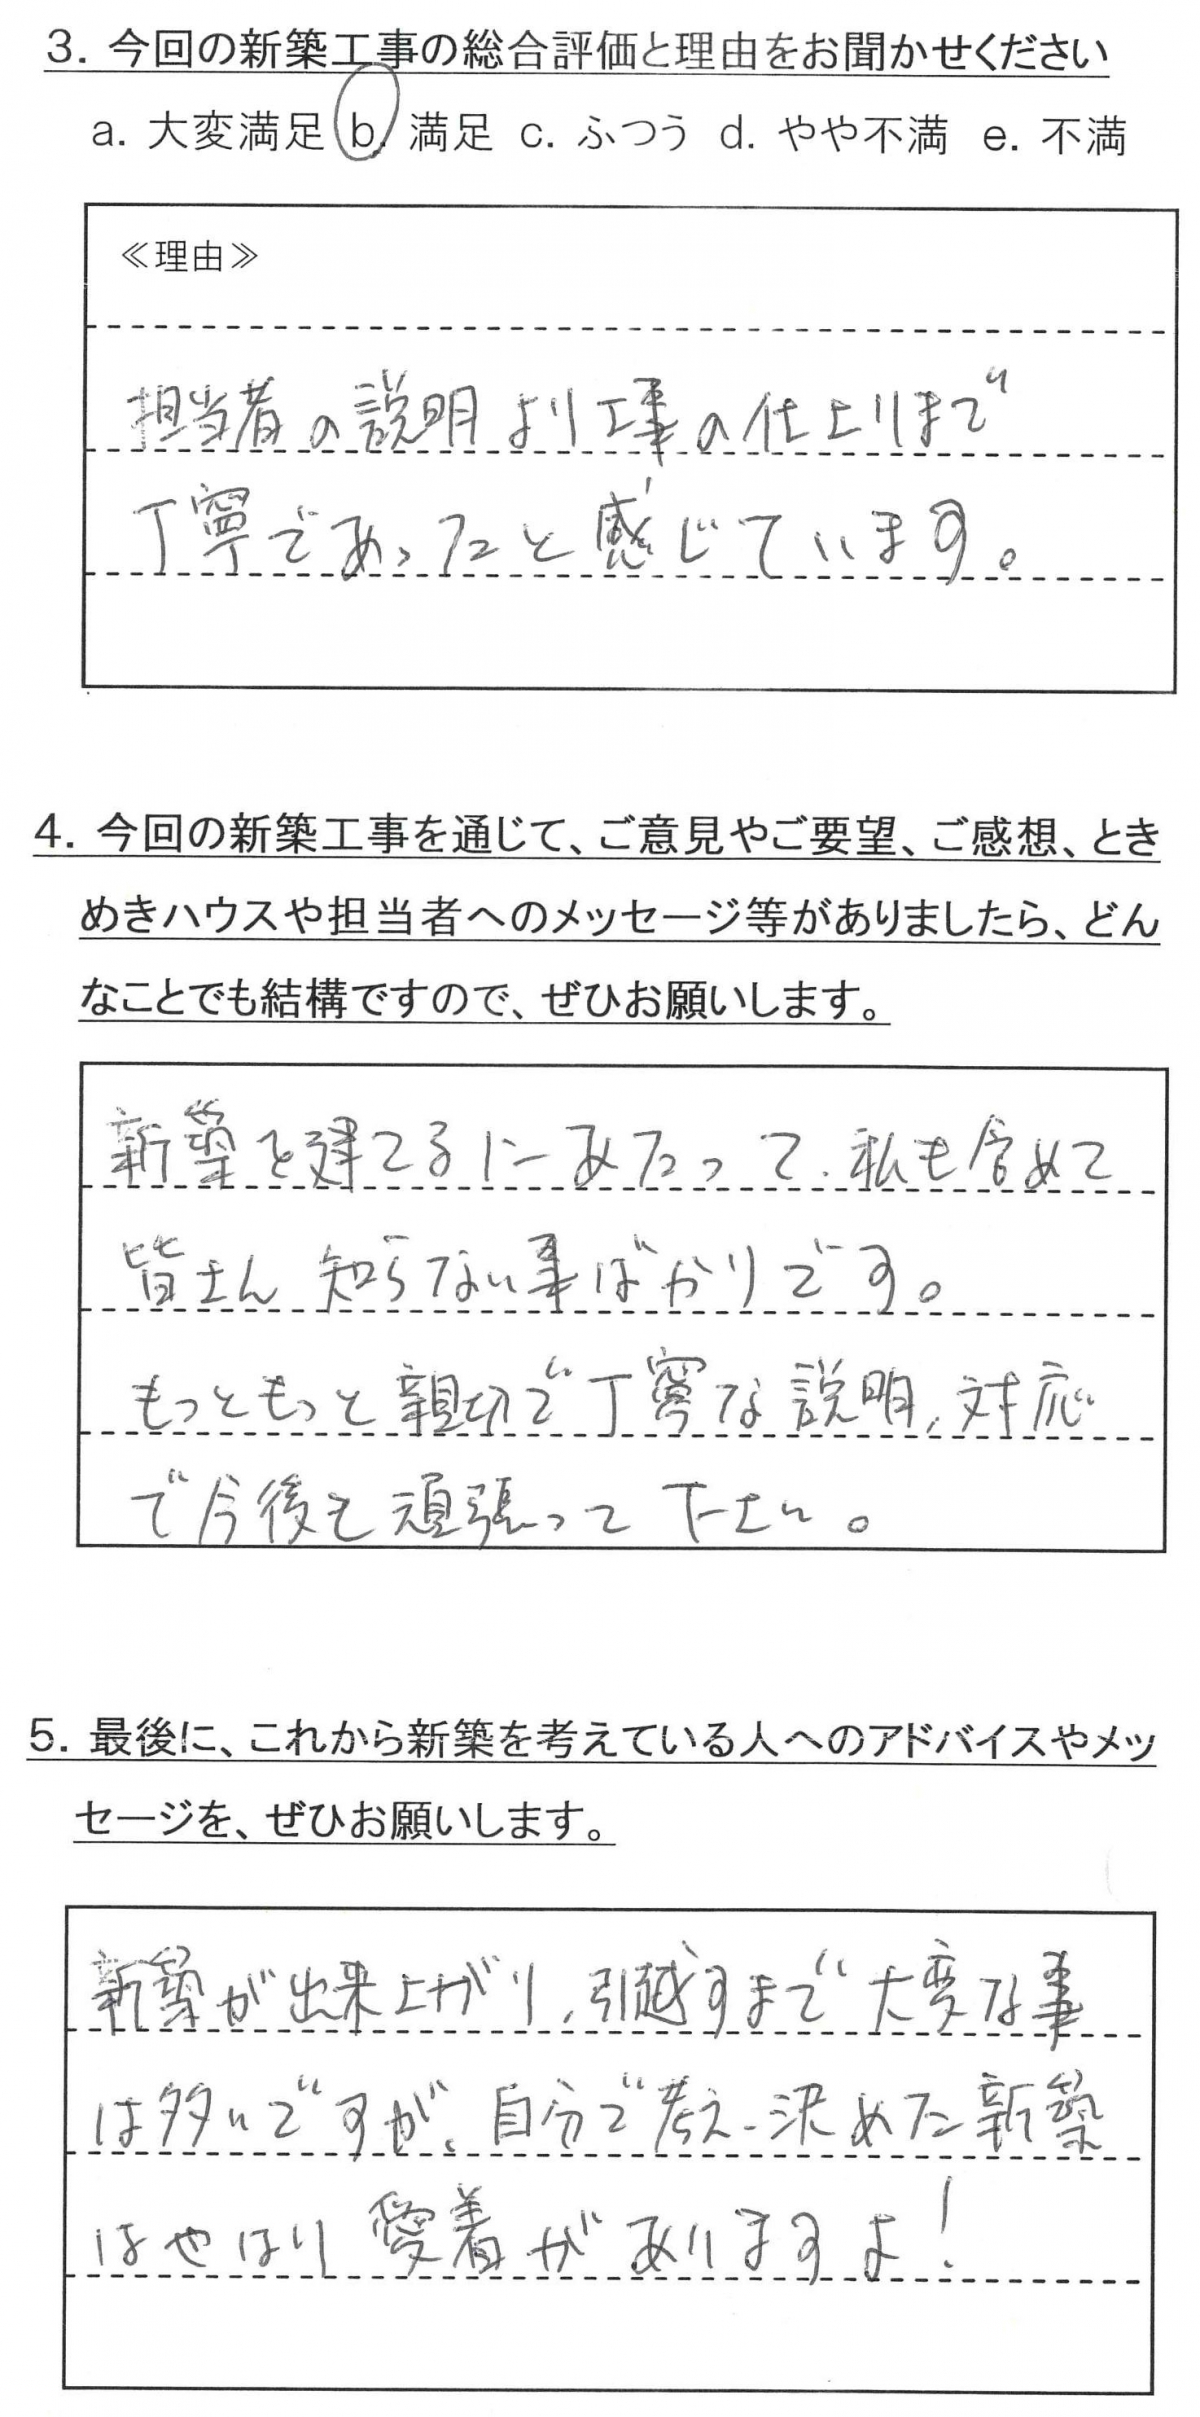 3. 今回の新築工事の総合評価と理由をお聞かせください
a. 大変満足 b. 満足 c. ふつう d. やや不満 e. 不満
≪理由≫
担当者の説明より工事の仕上りまで
丁寧であったと感じています。
4. 今回の新築工事を通じて、ご意見やご要望、ご感想、とき
めきハウスや担当者へのメッセージ等がありましたら、どん
なことでも結構ですので、ぜひお願いします。
新築を建てるにあたって、私も含めて
皆さん 知らない事ばかりです。
もっともっと親切で丁寧な説明、対応
で今後も頑張って下さい。
5. 最後に、これから新築を考えている人へのアドバイスやメッ
セージを、ぜひお願いします。
新築が出来上がり、引越すまで大変な事
は多いですが、自分で考え、決めた新築
はやはり愛着がありますよ!